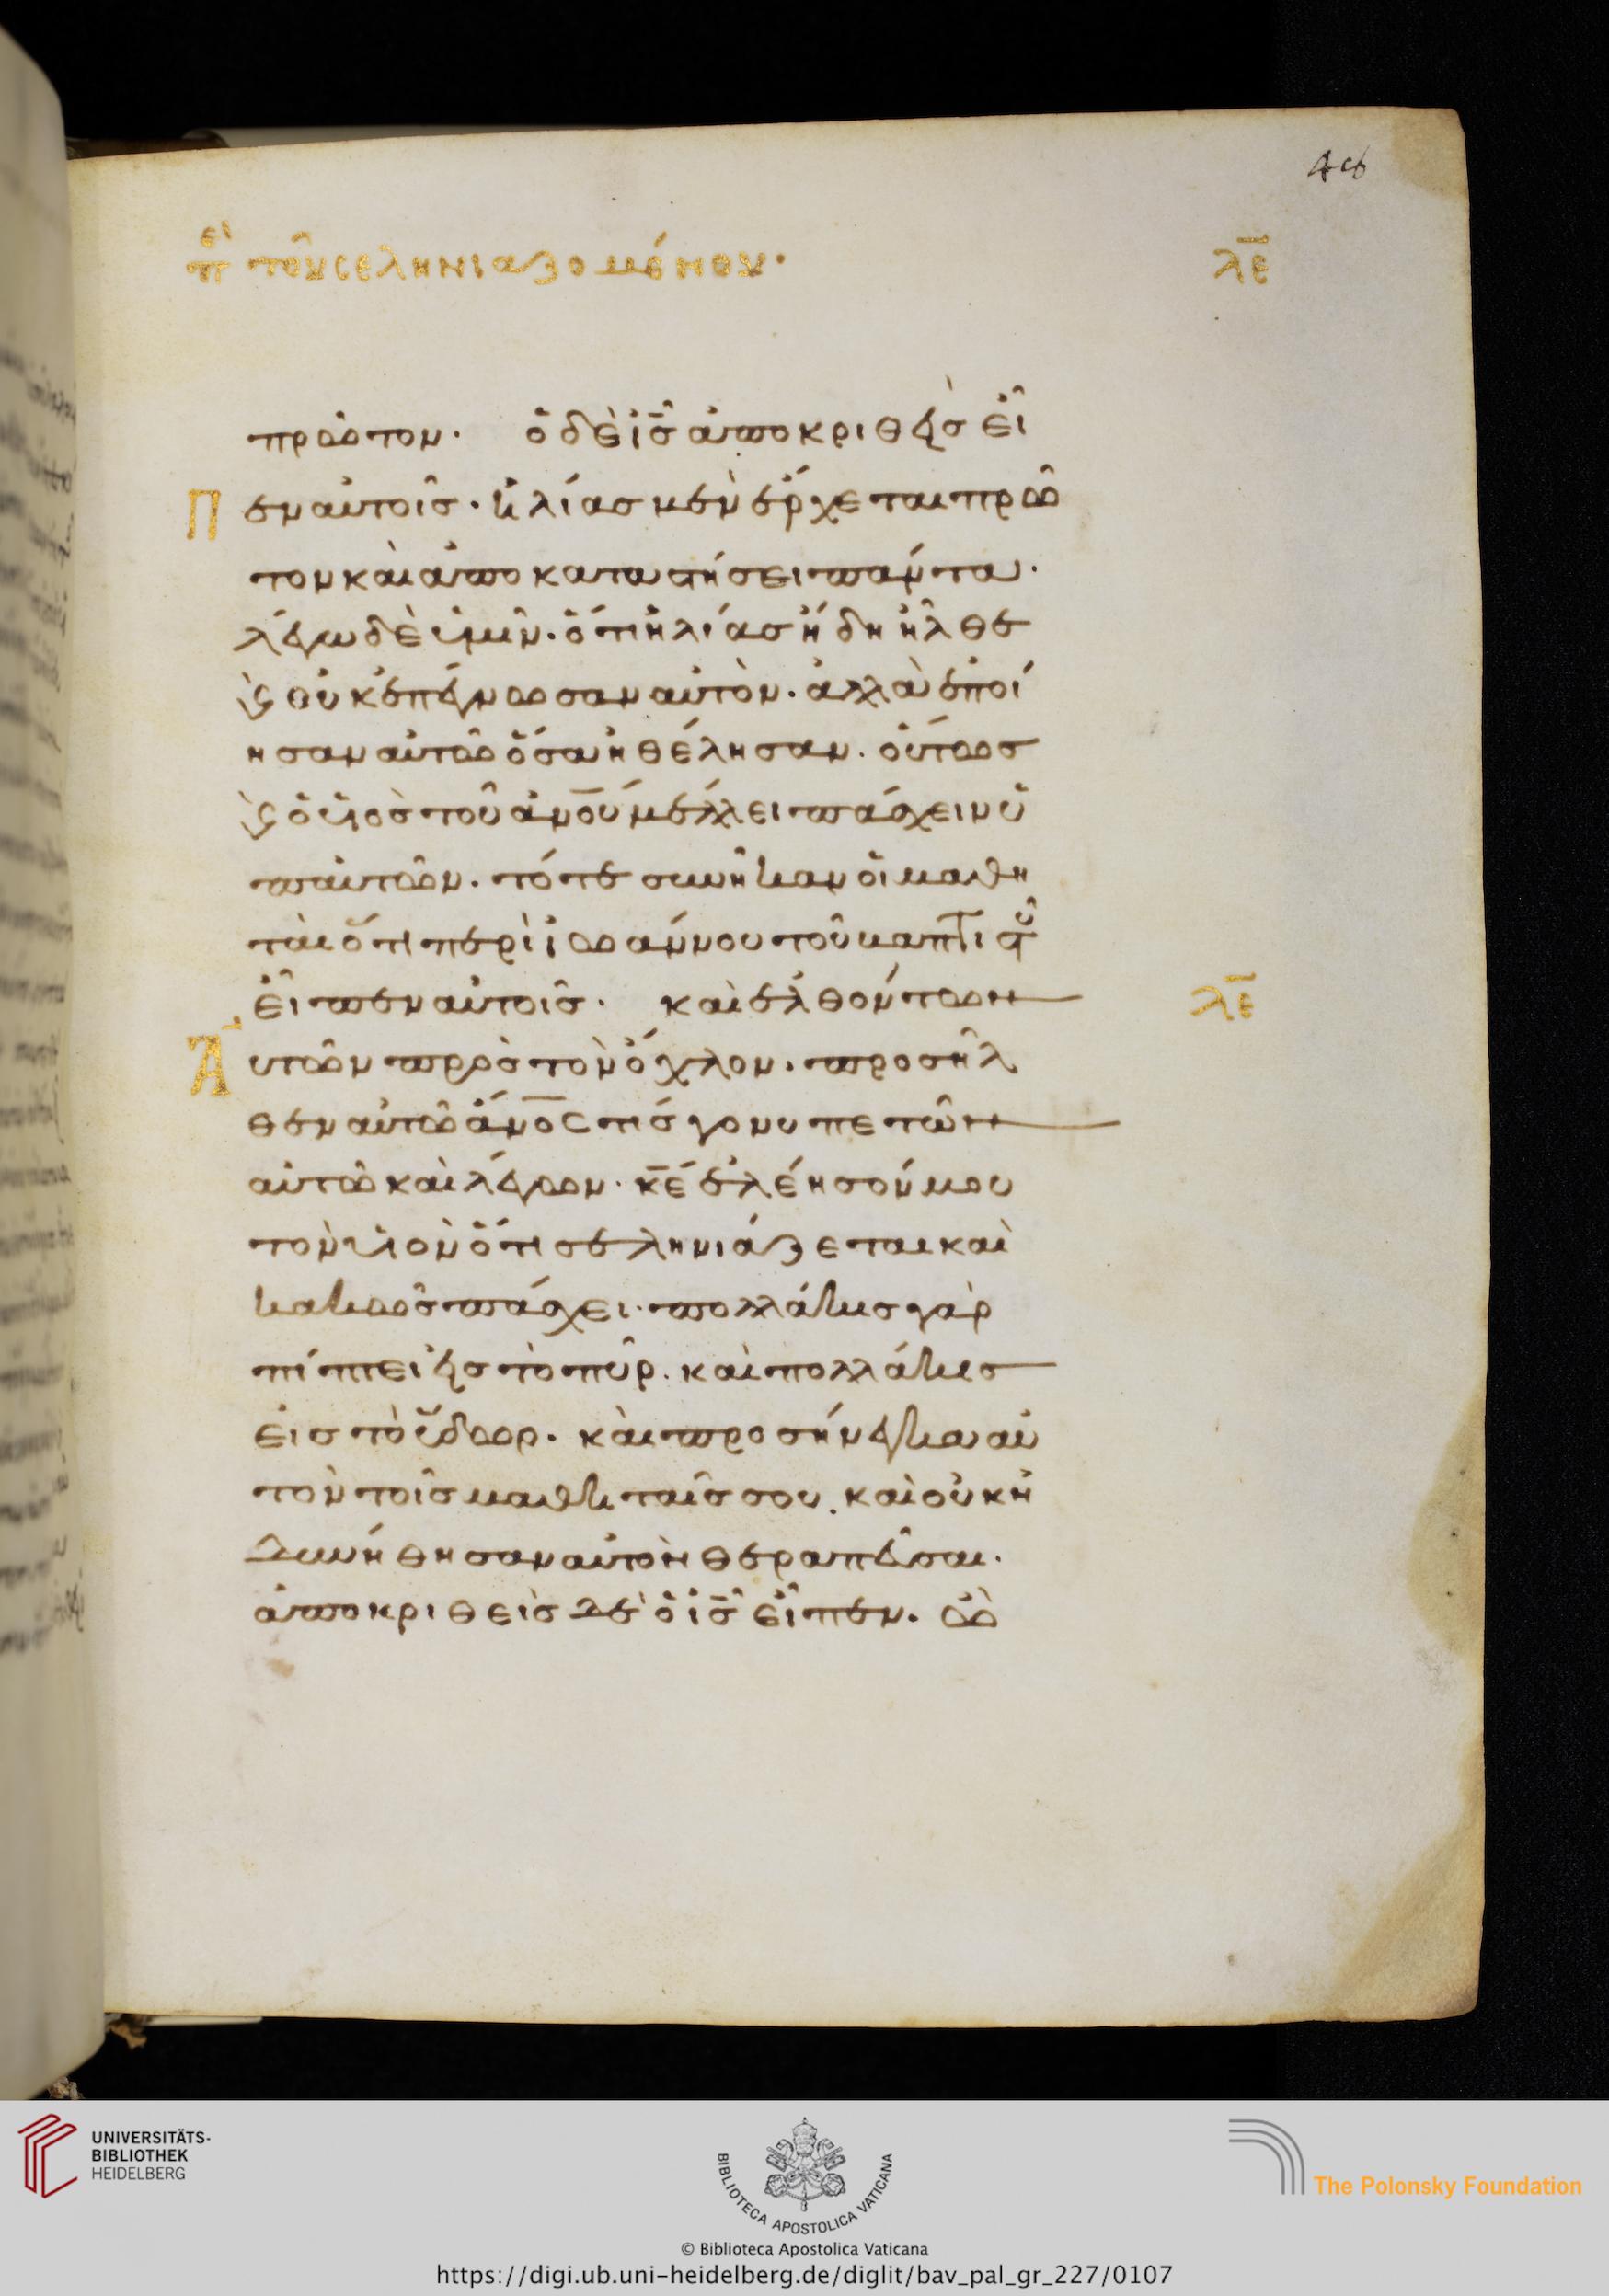 46
πει τὸν σεληνιαζομένον· λε̅
πρῶτον· ὁ δὲ ι̅ς̅ ἀποκριθεὶς εἶ
Π εν αὐτοῖς· ἠλίας μὲν ἔρχεται πρῶ
τον καὶ ἀποκαταστήσει πάντα·
λέγω δὲ ὑμῖν· ὅτι ἠλίας ἤδη ἦλθε
ϗ οὐκ ἐπέγνωσαν αὐτὸν· ἀλλὰ ἐποί
ησαν αὐτῶ ὅσα ἠθέλησαν· οὕτως
ϗ ὁ υἱὸς τοῦ α̅ν̅ο̅υ̅ μέλλει πάσχειν ὑ
π αὐτῶν· τότε συνῆκαν οἱ μαθη
ταὶ ὅτι περὶ ἰωάννου τοῦ βαπτιστοῦ
εἶπεν αὐτοῖς· καὶ ἐλθόντων λε̅
Α ὐτῶν πρὸς τὸν ὄχλον· προσῆλ
θεν αὐτῶ α̅ν̅ο̅ς̅ τίς γονυπετῶν
αὐτῶ καὶ λέγων· κ̅ε̅ ἐλέησόν μου
τὸν υἱὸν ὅτι σεληνιάζεται καὶ
κακῶς πάσχει· πολλάκις γὰρ
πίπτει εἰς τὸ πῦρ· καὶ πολλάκις
εἰς τὸ ὕδωρ· καὶ προσήνεγκα αὐ
τὸν τοῖς μαθηταῖς σου· καὶ οὐκ ἠ
δυνήθησαν αὐτὸν θεραπεῦσαι·
ἀποκριθεὶς δὲ ὁ ι̅ς̅ εἶπεν· ὦ
UNIVERSITÄTS-
BIBLIOTHEK
HEIDELBERG
BIBLIOTECA APOSTOLICA VATICANA
The Polonsky Foundation
© Biblioteca Apostolica Vaticana
https://digi.ub.uni-heidelberg.de/diglit/bav_pal_gr_227/0107